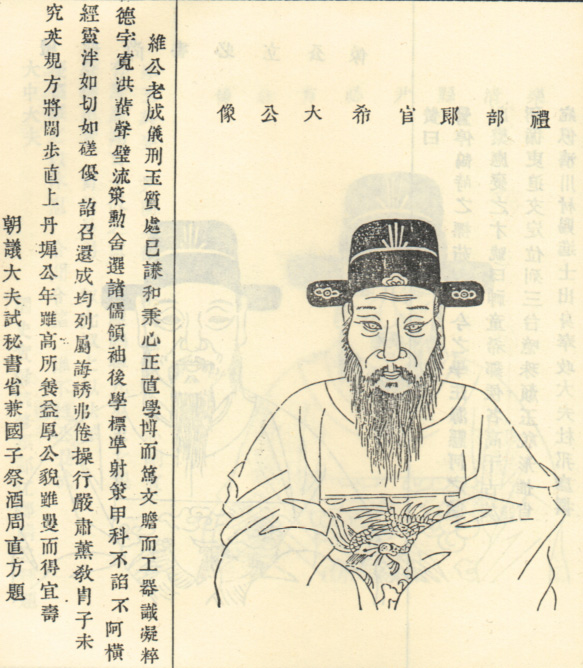 禮部郎官希大公像
維公老成儀刑玉質處己謙和秉心正直學博而篤文贍而工器識凝粹
德宇寬洪蜚聲璧流策勲舍選諸儒領袖後學標準射策甲科不諂不阿橫
經靈泮如切如磋優 詔召還成均列屬誨誘弗倦操行嚴肅薰敎胄子未
究英規方將闊步直上丹墀公年雖高所養益厚公貌雖癯而得宜壽
朝議大夫試秘書省兼國子祭酒周直方題